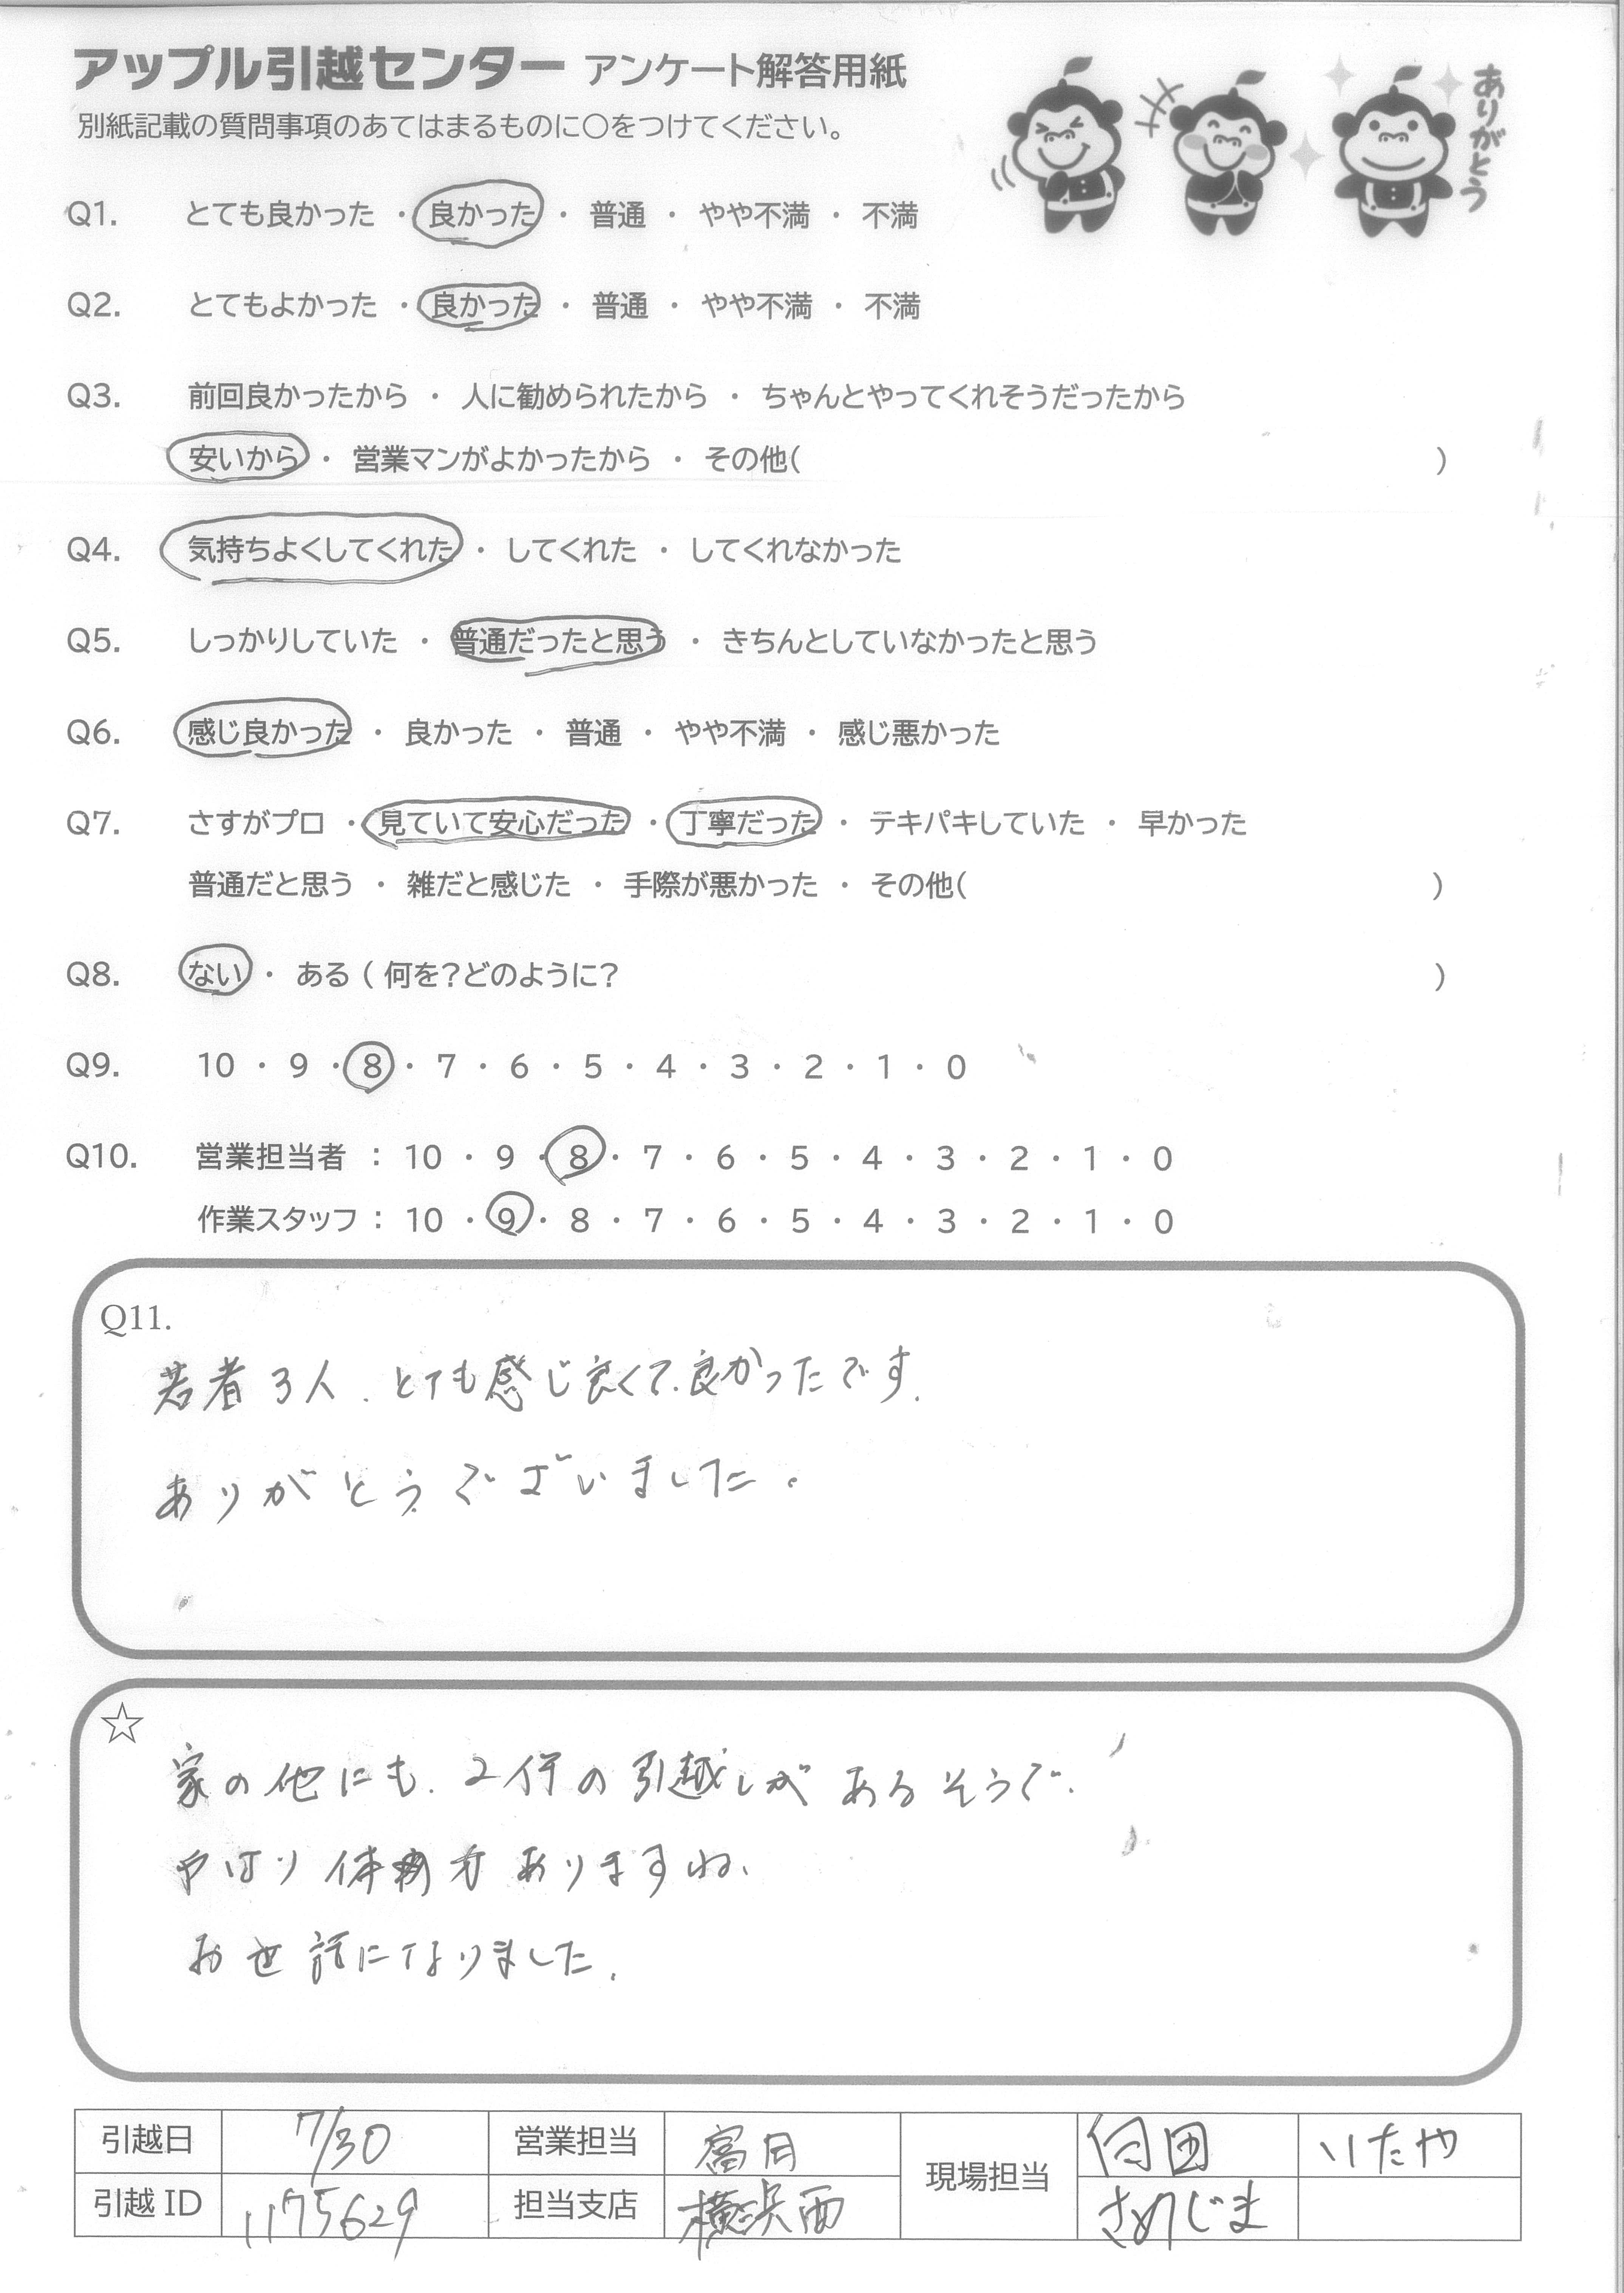 アップル引越センター アンケート解答用紙
別紙記載の質問事項のあてはまるものに○をつけてください。
ありがとう
Q1. とても良かった ・ 良かった ・ 普通 ・ やや不満 ・ 不満
Q2. とてもよかった ・ 良かった ・ 普通 ・ やや不満 ・ 不満
Q3. 前回良かったから ・ 人に勧められたから ・ ちゃんとやってくれそうだったから
安いから ・ 営業マンがよかったから ・ その他( )
Q4. 気持ちよくしてくれた ・ してくれた ・ してくれなかった
Q5. しっかりしていた ・ 普通だったと思う ・ きちんとしていなかったと思う
Q6. 感じ良かった ・ 良かった ・ 普通 ・ やや不満 ・ 感じ悪かった
Q7. さすがプロ ・ 見ていて安心だった ・ 丁寧だった ・ テキパキしていた ・ 早かった
普通だと思う ・ 雑だと感じた ・ 手際が悪かった ・ その他( )
Q8. ない ・ ある ( 何を?どのように? )
Q9. 10 ・ 9 ・ 8 ・ 7 ・ 6 ・ 5 ・ 4 ・ 3 ・ 2 ・ 1 ・ 0
Q10. 営業担当者 : 10 ・ 9 ・ 8 ・ 7 ・ 6 ・ 5 ・ 4 ・ 3 ・ 2 ・ 1 ・ 0
作業スタッフ : 10 ・ 9 ・ 8 ・ 7 ・ 6 ・ 5 ・ 4 ・ 3 ・ 2 ・ 1 ・ 0
Q11.
若者3人、とても感じ良くて、良かったです。
ありがとうございました。
☆
家の他にも、2件の引越しがあるそうで、
やはり体力ありますね、
お世話になりました。
引越日 7/30 営業担当 富月 現場担当 いたや
引越 ID 1175629 担当支店 横浜西 さめじま